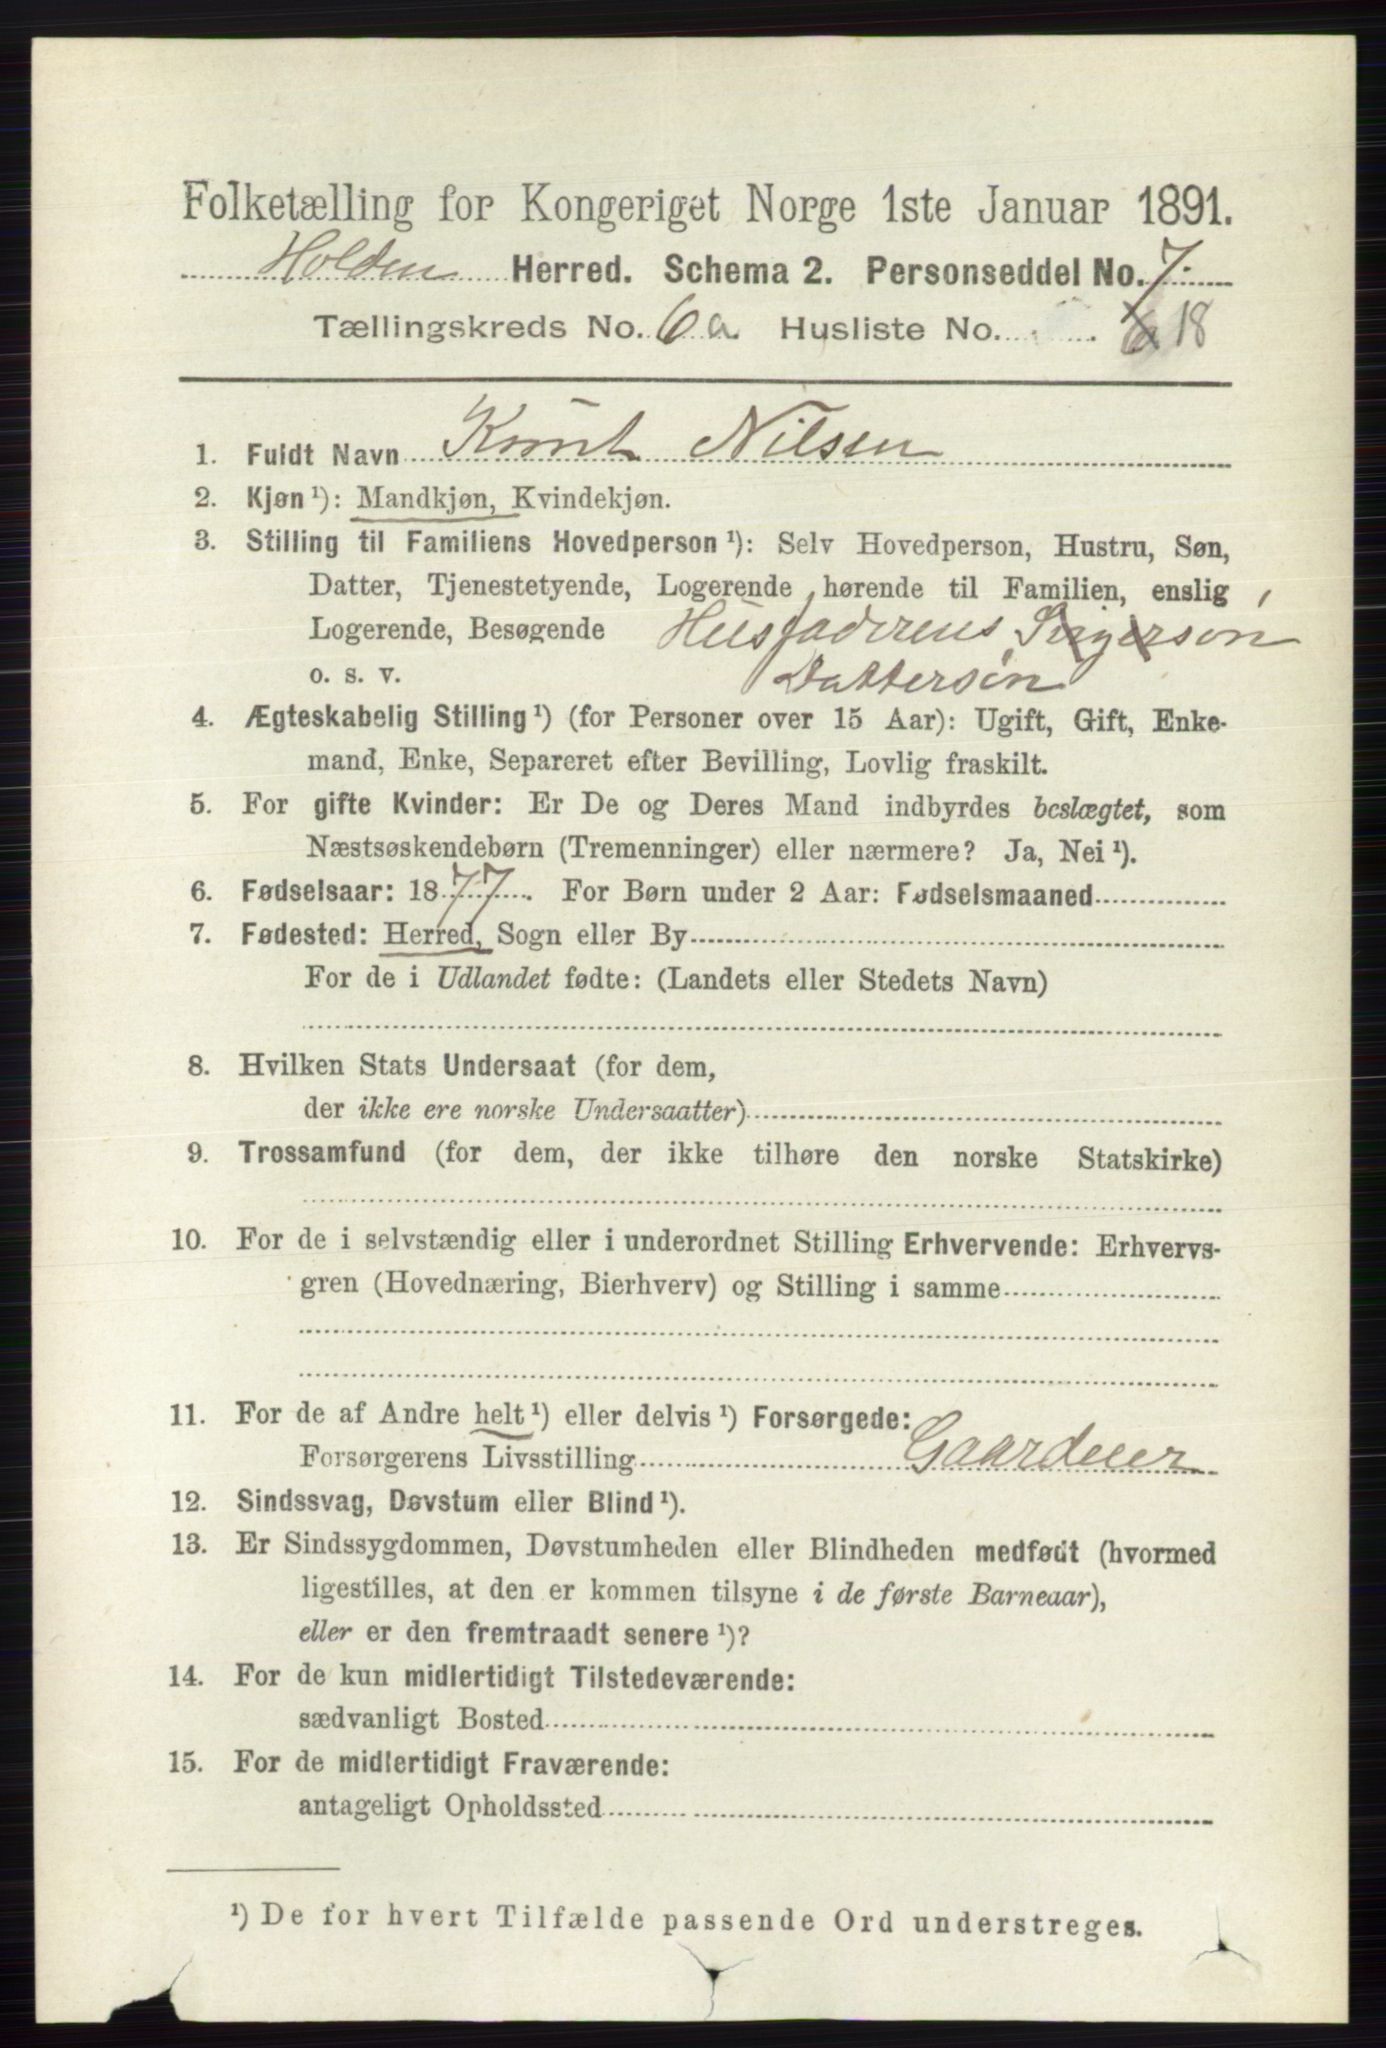 Folketælling for Kongeriget Norge 1ste Januar 1891.
Holden Herred. Schema 2. Personseddel No. 7
Tællingskreds No. 6a Husliste No. 6 18
1. Fuldt Navn Knut Nilsen
2. Kjøn ¹): Mandkjøn, Kvindekjøn.
3. Stilling til Familiens Hovedperson ¹): Selv Hovedperson, Hustru, Søn,
Datter, Tjenestetyende, Logerende hørende til Familien, enslig
Logerende, Besøgende Husfaderens
o. s. v. Dattersøn
4. Ægteskabelig Stilling ¹) (for Personer over 15 Aar): Ugift, Gift, Enke-
mand, Enke, Separeret efter Bevilling, Lovlig fraskilt.
5. For gifte Kvinder: Er De og Deres Mand indbyrdes beslægtet, som
Næstsøskendebørn (Tremenninger) eller nærmere? Ja, Nei ¹).
6. Fødselsaar: 1877. For Børn under 2 Aar: Fødselsmaaned
7. Fødested: Herred, Sogn eller By
For de i Udlandet fødte: (Landets eller Stedets Navn)
8. Hvilken Stats Undersaat (for dem,
der ikke ere norske Undersaatter)
9. Trossamfund (for dem, der ikke tilhøre den norske Statskirke)
10. For de i selvstændig eller i underordnet Stilling Erhvervende: Erhvervs-
gren (Hovednæring, Bierhverv) og Stilling i samme
11. For de af Andre helt ¹) eller delvis ¹) Forsørgede:
Forsørgerens Livsstilling Gaardeier
12. Sindssvag, Døvstum eller Blind ¹).
13. Er Sindssygdommen, Døvstumheden eller Blindheden medfødt (hvormed
ligestilles, at den er kommen tilsyne i de første Barneaar),
eller er den fremtraadt senere ¹)?
14. For de kun midlertidigt Tilstedeværende:
sædvanligt Bosted
15. For de midlertidigt Fraværende:
antageligt Opholdssted
¹) De for hvert Tilfælde passende Ord understreges.